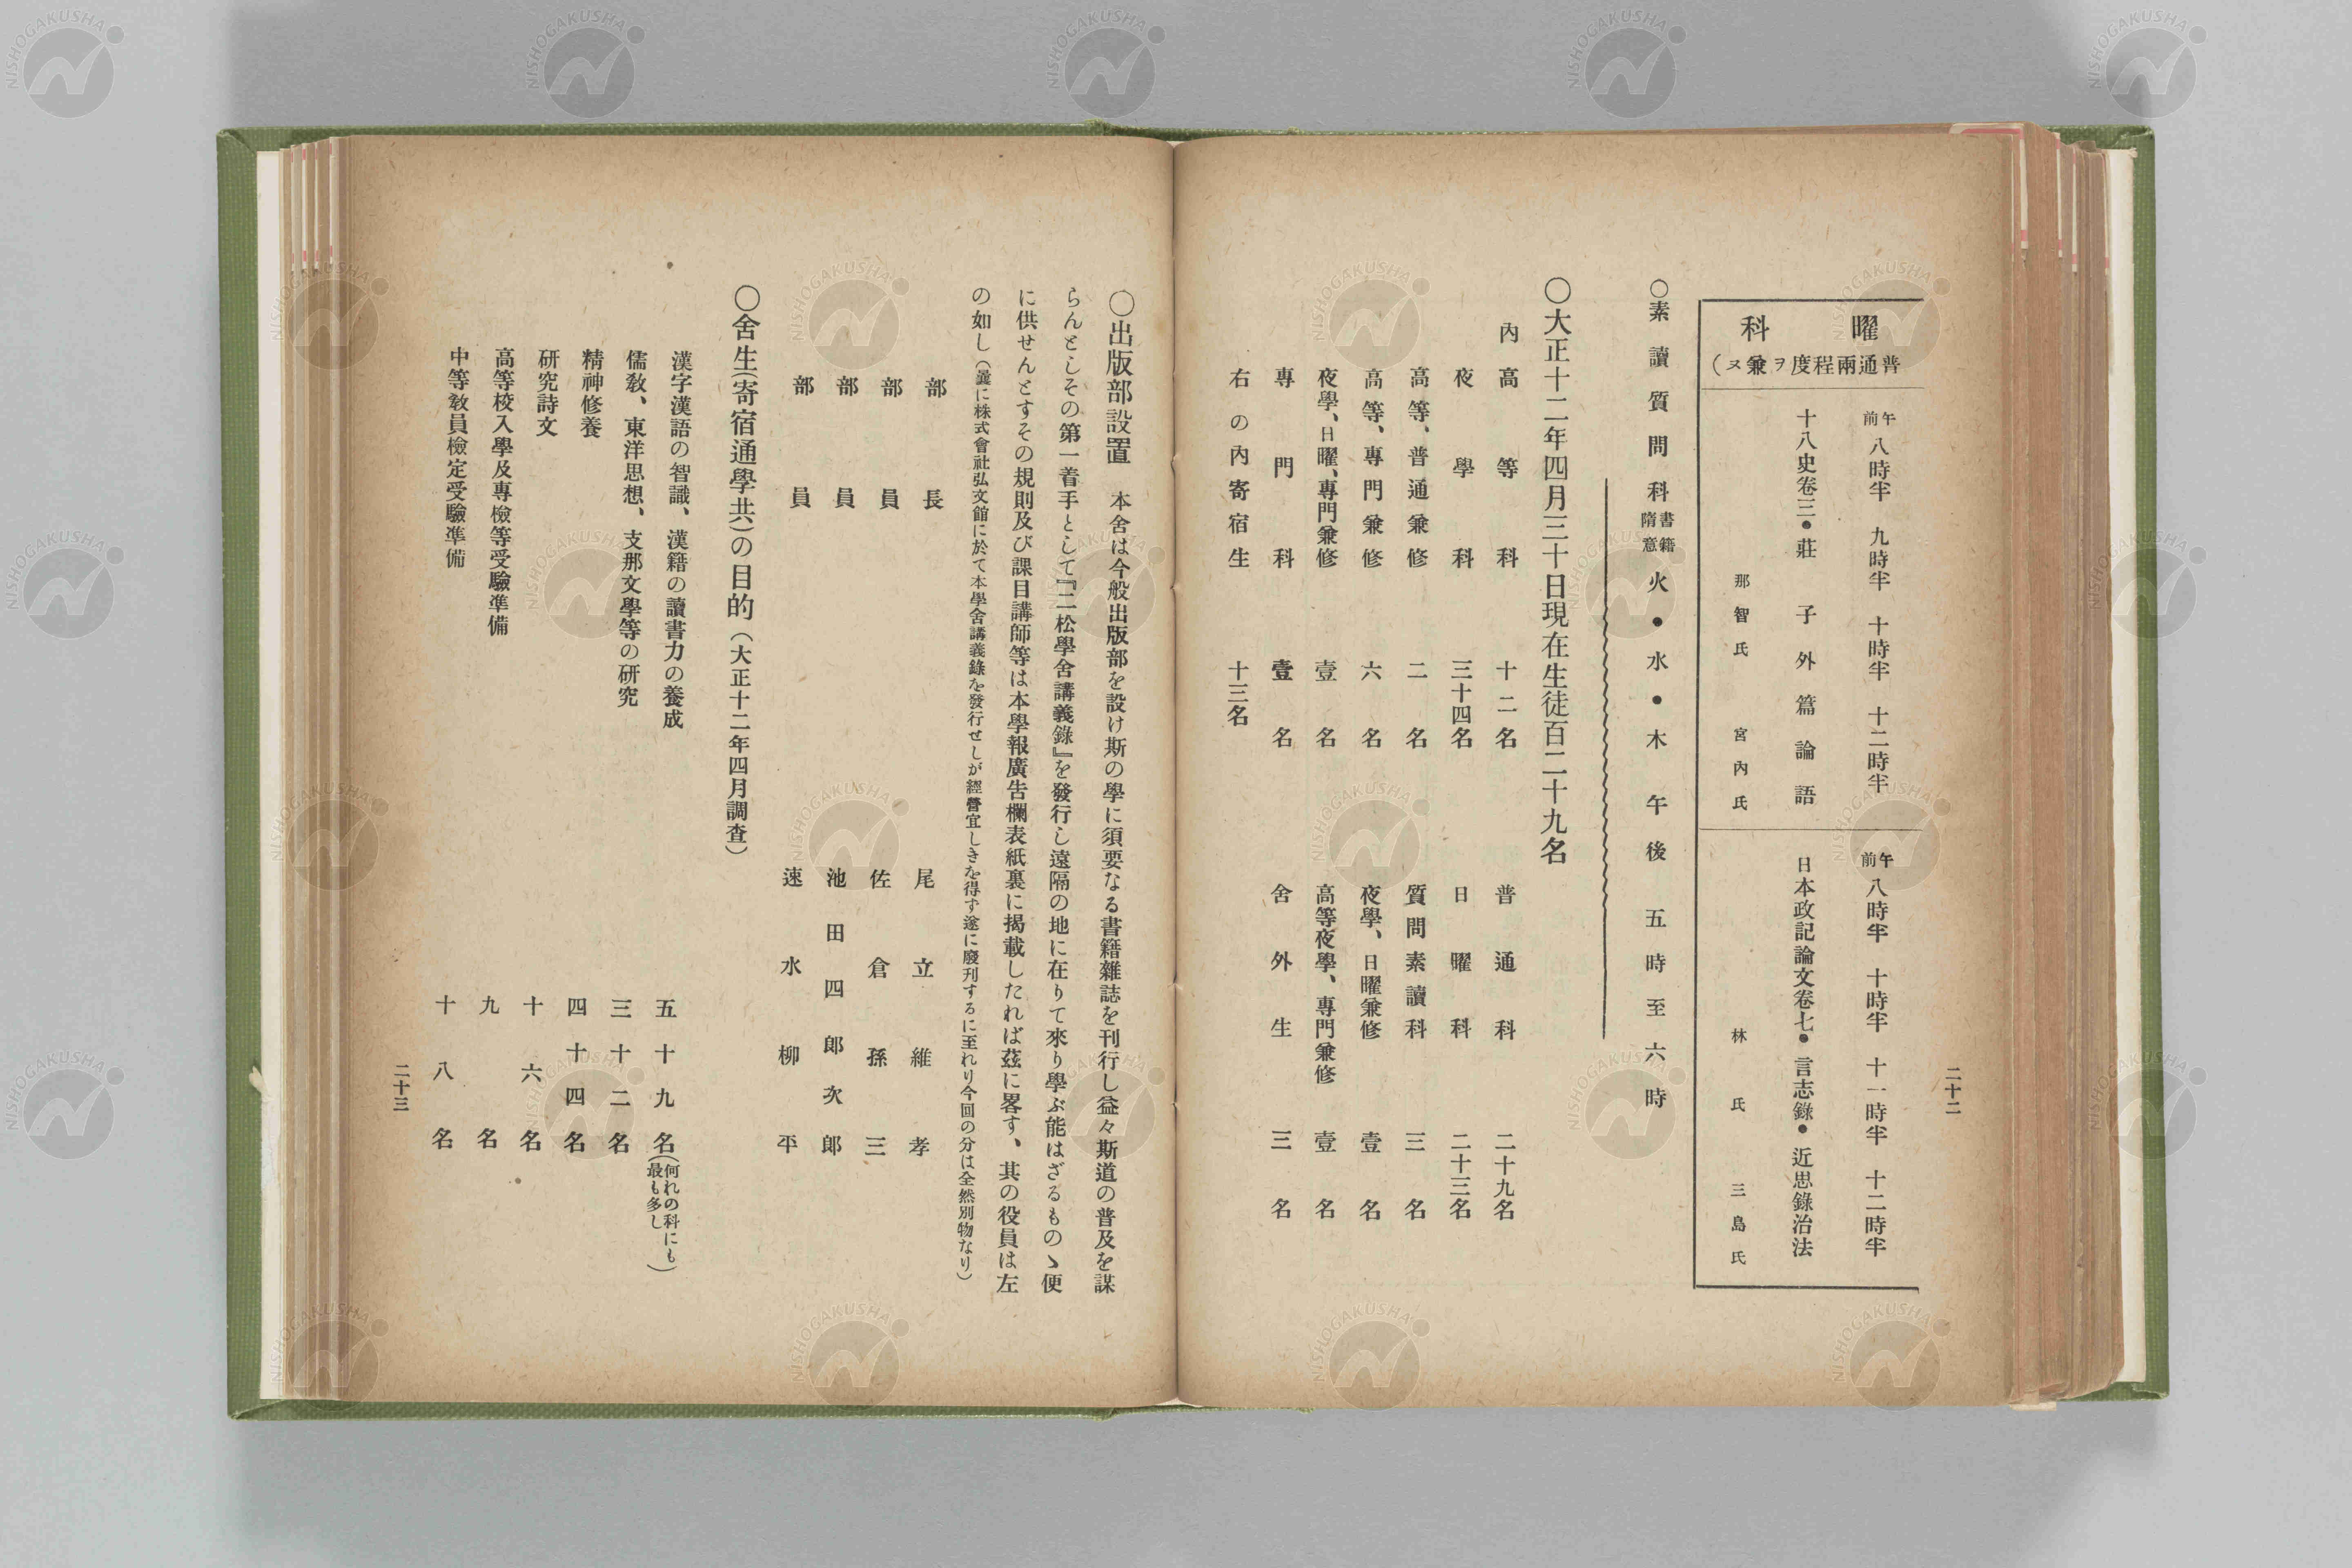 二十二
曜科
普通兩程度ヲ兼ヌ）
午前八時半　九時半　十時半　十二時半
十八史卷三・莊子外篇論語
那智氏　宮內氏
午前八時半　十時半　十一時半　十二時半
日本政記論文卷七・言志錄・近思錄治法
林氏　三島氏
〇素讀質問科書籍隋意火・水・木　午後　五時至六時
〇大正十二年四月三十日現在生徒百二十九名
內高等科　十二名　普通科　二十九名
夜學科　三十四名　日曜科　二十三名
高等、普通兼修　二名　質問素讀科　三名
高等、專門兼修　六名　夜學、日曜兼修　壹名
夜學、日曜、專門兼修　壹名　高等夜學、專門兼修　壹名
專門科　壹名　舍外生　三名
右の內寄宿生　十三名
〇出版部設置　本舍は今般出版部を設け斯の學に須要なる書籍雜誌を刊行し益々斯道の普及を謀
らんとしその第一着手として『二松學舍講義錄』を發行し遠隔の地に在りて來り學ぶ能はざるものゝ便
に供せんとすその規則及び課目講師等は本學報廣告欄表紙裏に揭載したれば茲に畧す、其の役員は左
の如し（曩に株式會社弘文館に於て本學舍講義錄を發行せしが經營宜しきを得ず遂に廢刊するに至れり今回の分は全然別物なり）
部長　尾立維孝
部員　佐倉孫三
部員　池田四郎次郎
部員　速水柳平
〇舍生（寄宿通學共）の目的（大正十二年四月調查）
漢字漢語の智識、漢籍の讀書力の養成　五十九名（何れの科にも最も多し）
儒敎、東洋思想、支那文學等の硏究　三十二名
精神修養　四十四名
硏究詩文　十六名
高等校入學及專檢等受驗準備　九名
中等敎員檢定受驗準備　十八名
二十三
NISHOGAKUSHA